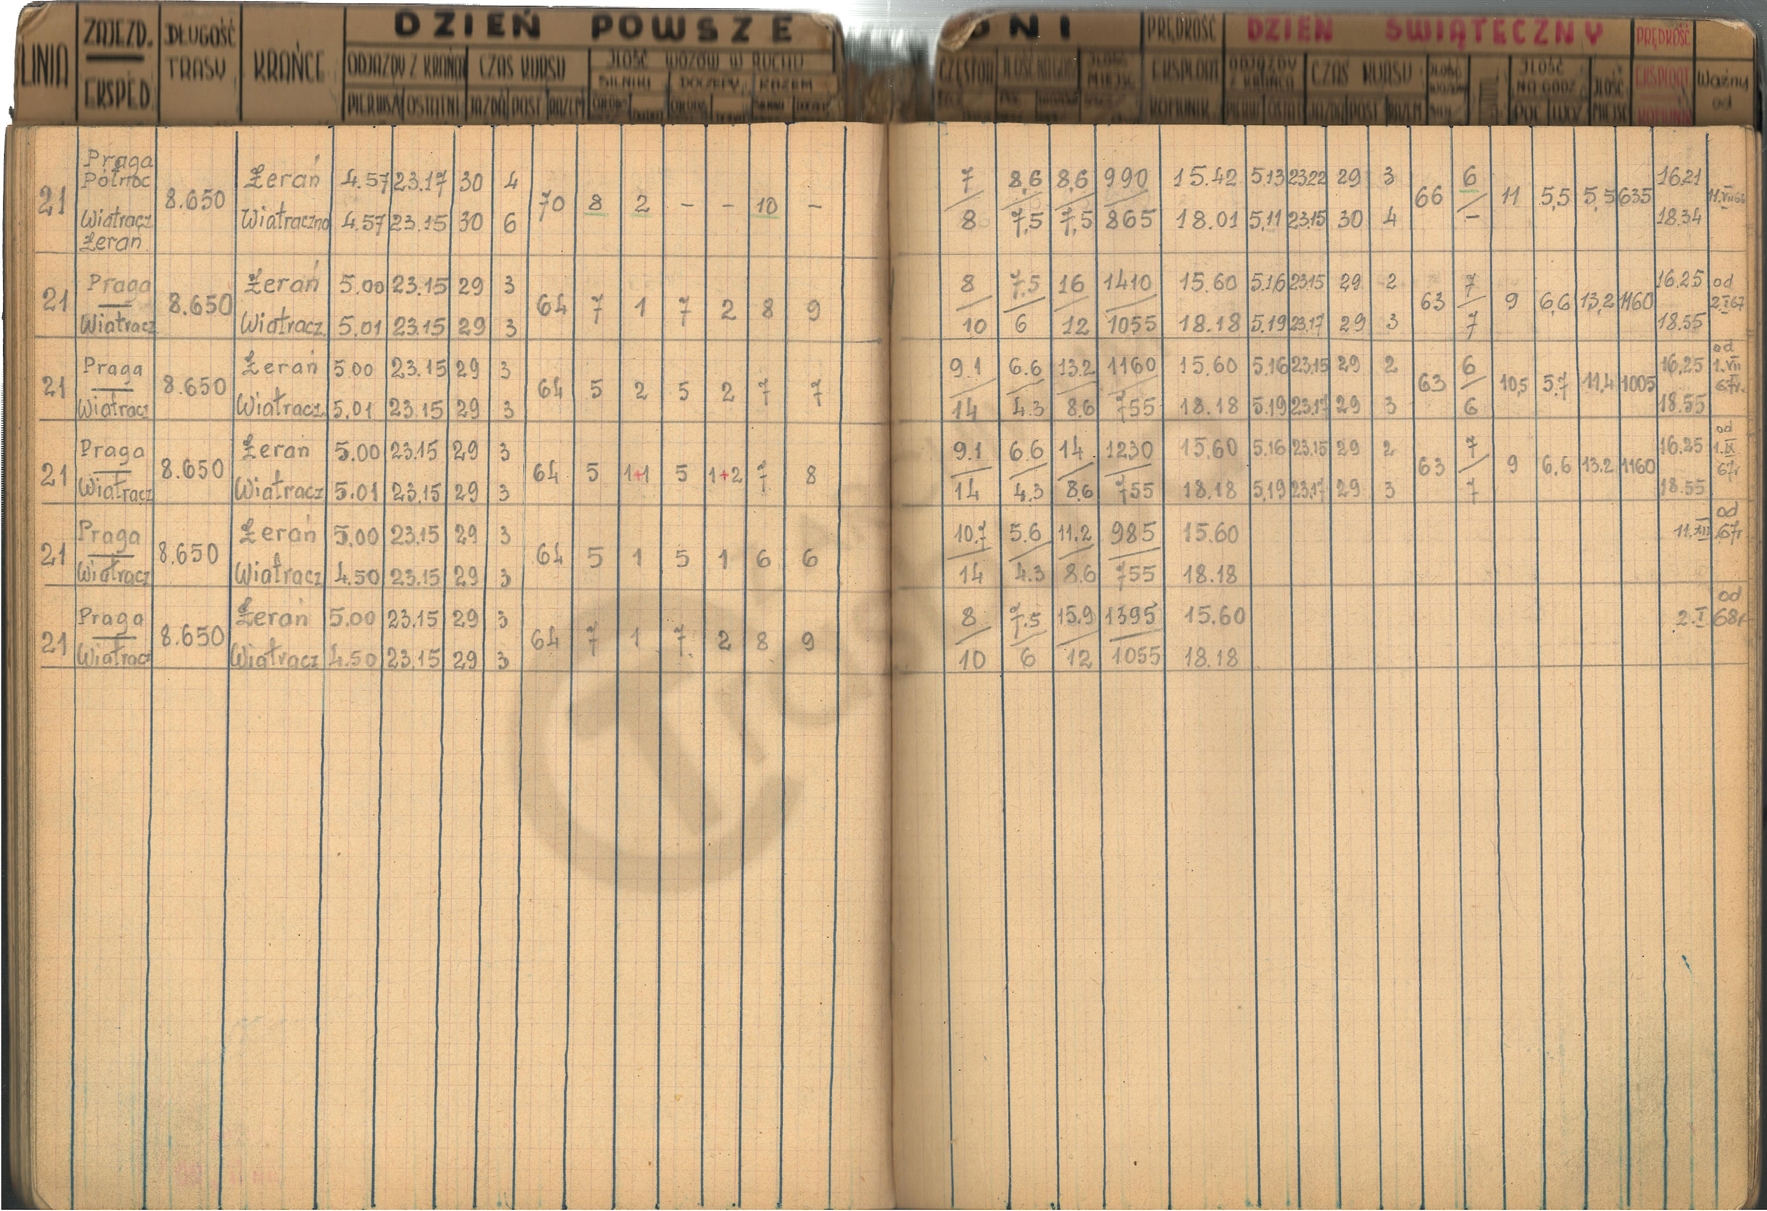 DZIEŃ POWSZE DNI PRĘDKOŚĆ DZIEŃ ŚWIĄTECZNY PRĘDKOŚĆ
LINIA ZAJEZD. EKSPED. DŁUGOŚĆ TRASY KRAŃCE
ODJAZDY Z KRAŃCA CZAS KURSU JLOŚĆ WOZÓW W RUCHU
SILNIKI DOCZEPY RAZEM
PIERWSZA OSTATNI JAZDA POST RAZEM
EKSPLOAT KOMUNIK. CZAS KURSU JAZDA POST RAZEM JLOŚĆ NA GODZ. JLOŚĆ MIEJSC Ważny od
Praga
Północ
Żerań 4.57 23.17 30 4 7 8,6 8,6 990 15.42 5.13 23.22 29 3 6 16.21
21 8.650 70 8 2 – – 10 – 66 11 5,5 5,5 635
Wiatracz Wiatraczna 4.57 23.15 30 6 8 7,5 7,5 865 18.01 5,11 23.15 30 4 – 18.34
Żerań
Praga Żerań 5.00 23.15 29 3 8 7,5 16 1410 15.60 5.16 23.15 29 2 7 16.25 od
21 8.650 64 7 1 7 2 8 9 63 9 6,6 13,2 1160 2.I 67
Wiatracz Wiatracz. 5.01 23.15 29 3 10 6 12 1055 18.18 5.19 23.17 29 3 7 18.55
od
Praga Żerań 5.00 23.15 29 3 9.1 6.6 13.2 1160 15.60 5.16 23.15 29 2 6 16,25 1.VII
21 8.650 64 5 2 5 2 7 7 63 10,5 5.7 11,4 1005 67r.
Wiatracz Wiatracz. 5.01 23.15 29 3 14 4.3 8,6 755 18.18 5.19 23.17 29 3 6 18.55
od
Praga Żerań 5.00 23.15 29 3 9.1 6.6 14 1230 15.60 5.16 23.15 29 2 7 16.25 1.IX
21 8.650 64 5 1+1 5 1+2 7 8 63 9 6,6 13.2 1160 67r
Wiatracz Wiatracz 5.01 23.15 29 3 14 4.3 8,6 755 18.18 5.19 23.17 29 3 7 18.55
od
Praga Żerań 5.00 23.15 29 3 10.7 5.6 11.2 985 15.60 11.XII 67r
21 8.650 64 5 1 5 1 6 6
Wiatracz Wiatracz 4.50 23.15 29 3 14 4.3 8.6 755 18.18
od
Praga Żerań 5.00 23.15 29 3 8 7.5 15.9 1395 15.60 2.I 68r
21 8.650 64 7 1 7 2 8 9
Wiatracz Wiatracz 4.50 23.15 29 3 10 6 12 1055 18.18